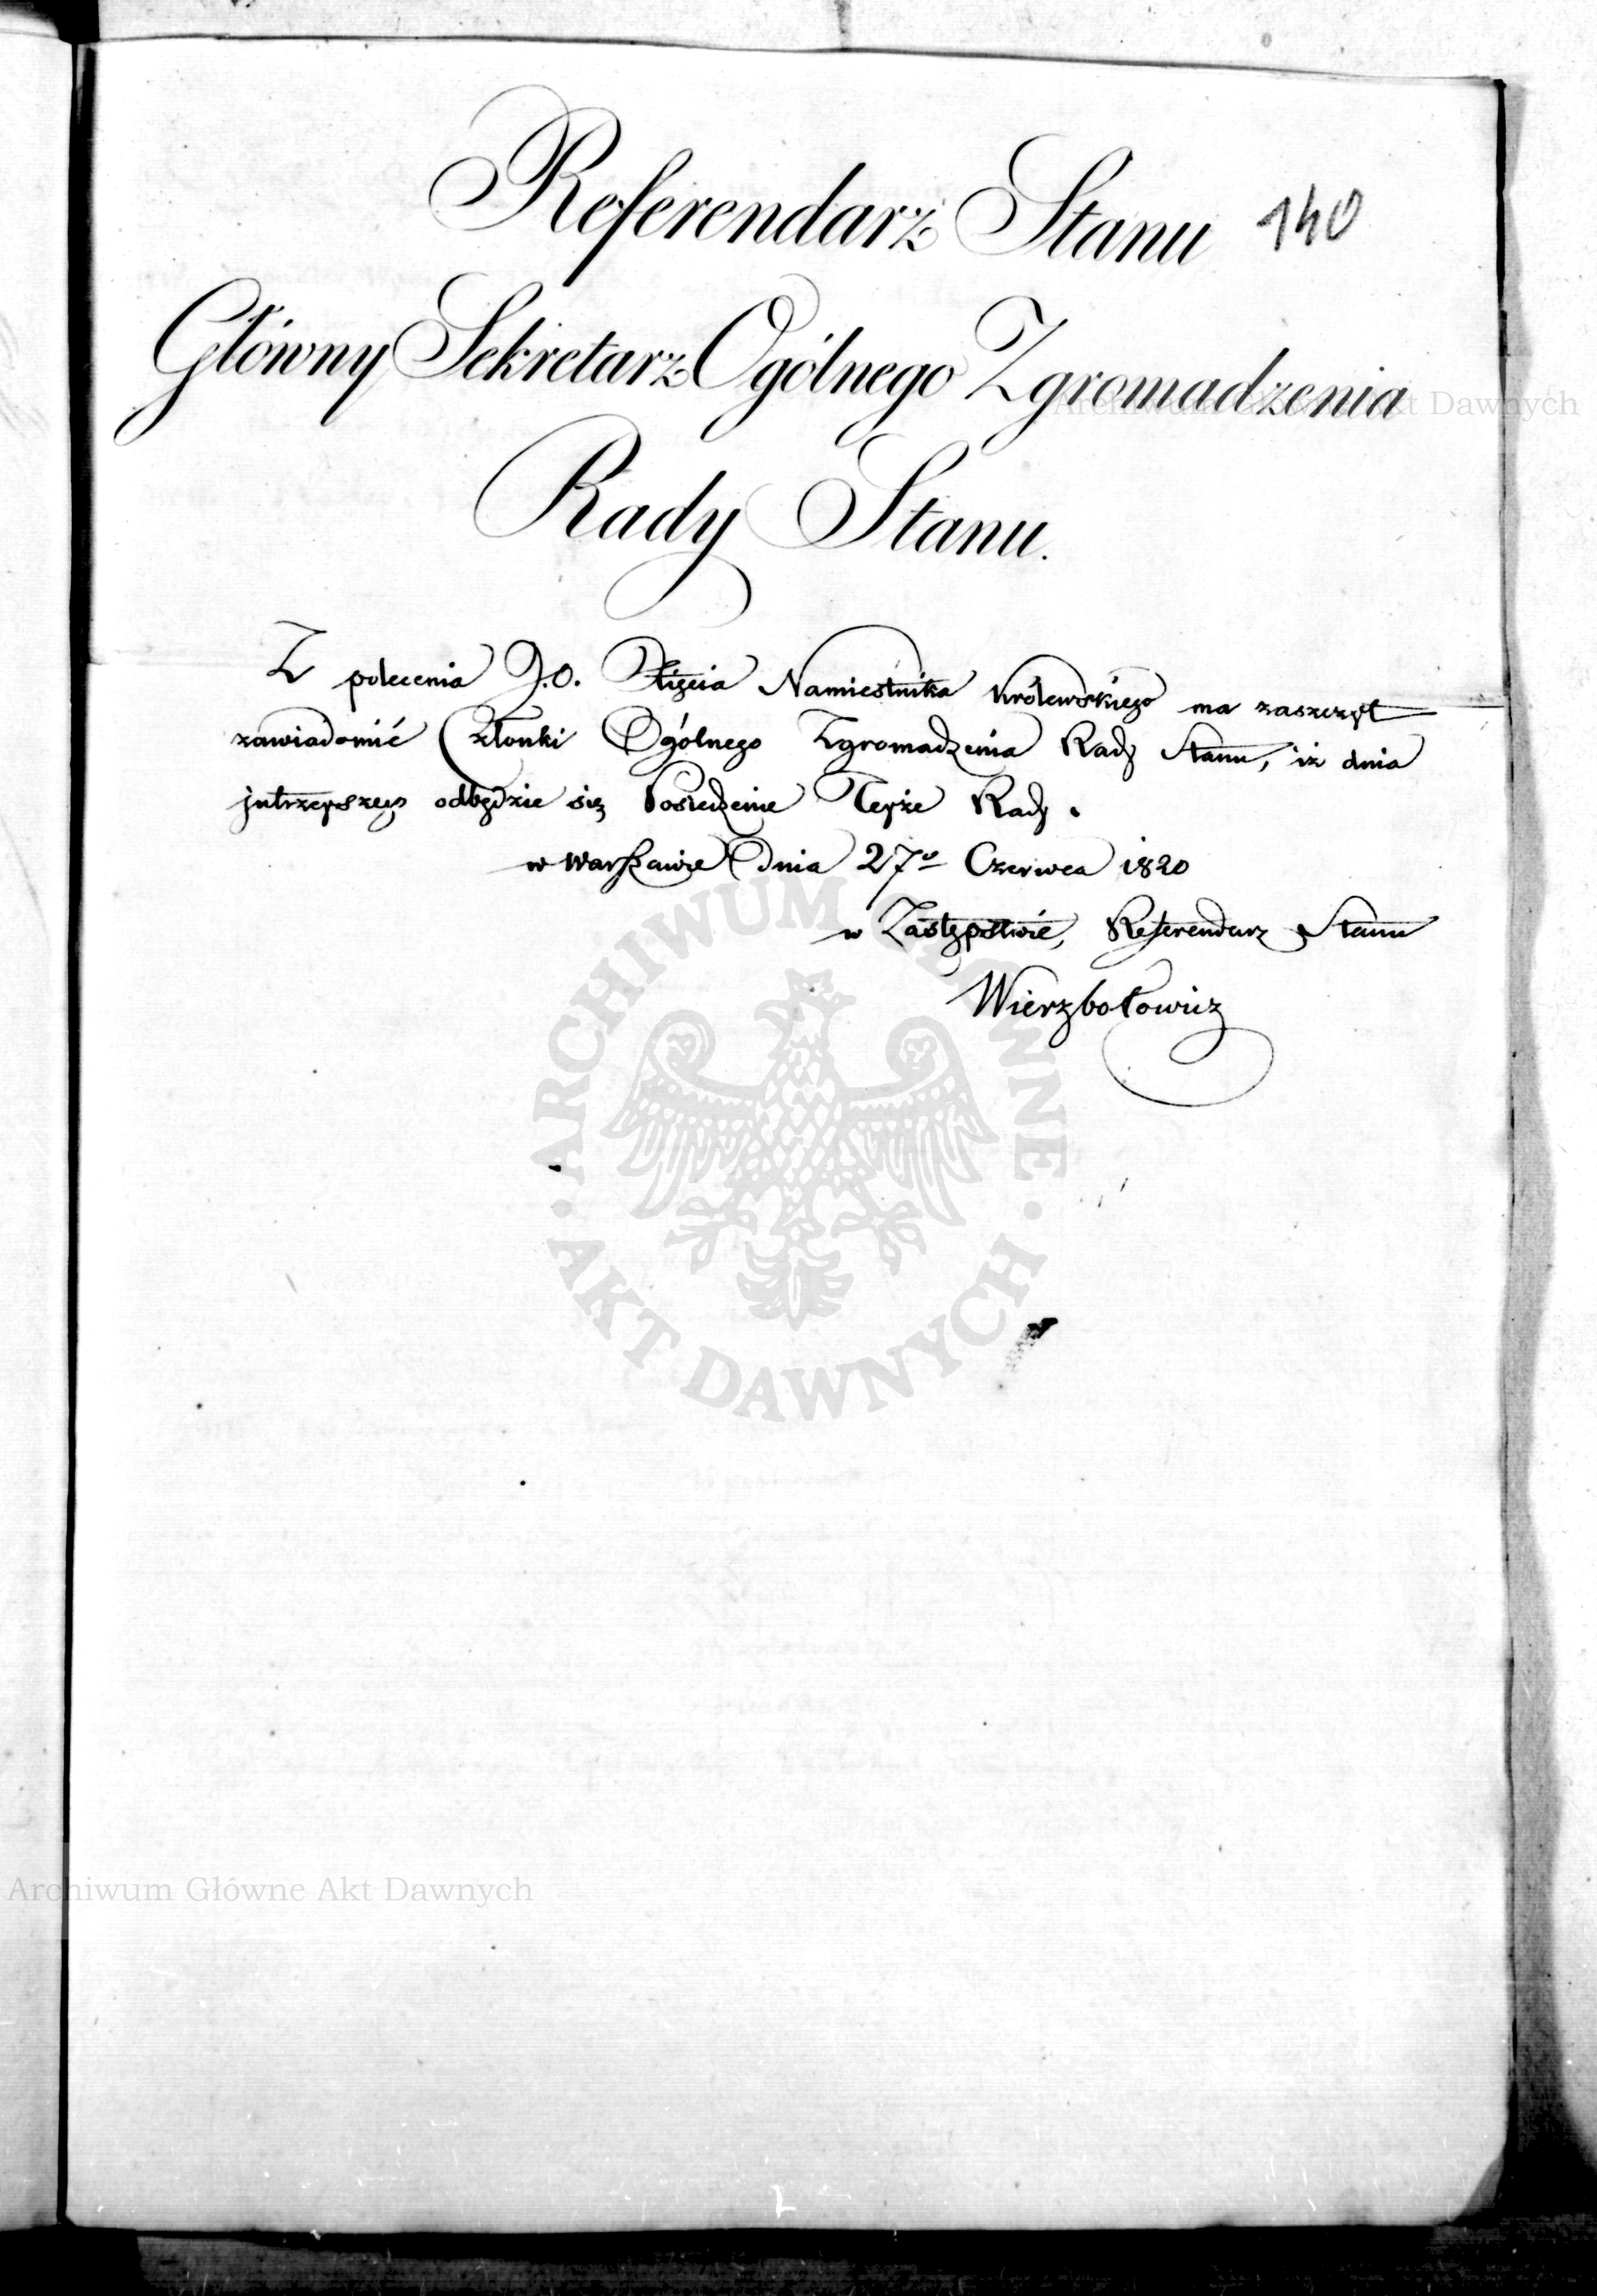 Referendarz Stanu 140
Główny Sekretarz Ogólnego Zgromadzenia
Rady Stanu.
Z polecenia J.O. Xięcia Namiestnika Królewskiego ma zaszczyt
zawiadomić Członki Ogólnego Zgromadzenia Rady Stanu, iż dnia
jutrzejszego odbędzie się Posiedzenie Tejże Rady.
w Warszawie Dnia 27º Czerwca 1820
w Zastępstwie, Referendarz Stanu
Wierzbołowicz
ARCHIWUM GŁÓWNE
AKT DAWNYCH
Archiwum Główne Akt Dawnych
Archiwum Główne Akt Dawnych